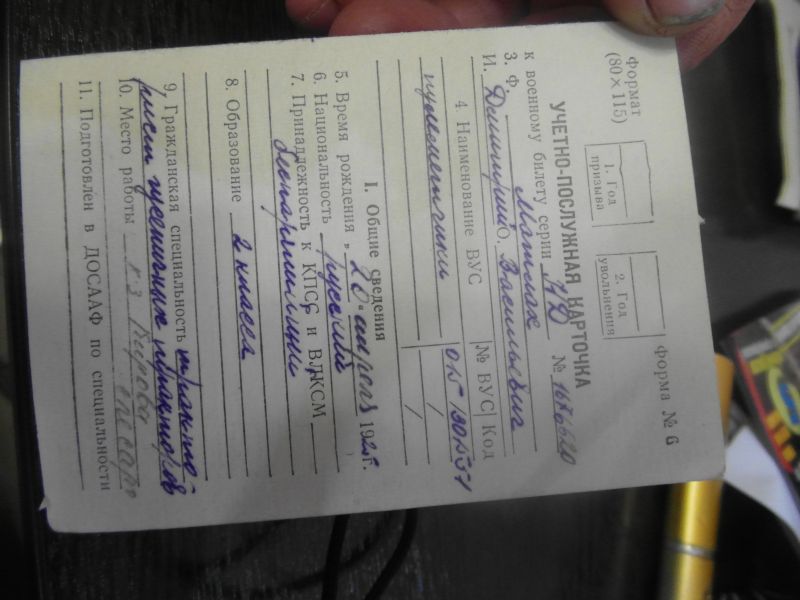 Формат
(80×115)
Форма № 6
1. Год
призыва
2. Год
увольнения
УЧЕТНО-ПОСЛУЖНАЯ КАРТОЧКА
к военному билету серии НО № 1676620
3. Ф. Матлах
И. Дмитрий О. Васильевич
4. Наименование ВУС № ВУС Код
пулеметчики
I. Общие сведения
5. Время рождения „ 20 " апреля 1925 г.
6. Национальность русский
7. Принадлежность к КПСС и ВЛКСМ
беспартийный
8. Образование 2 класса
9. Гражданская специальность тракто-
рист гусеничных тракторов
10. Место работы к-з Кирова слесарь
11. Подготовлен в ДОСААФ по специальности